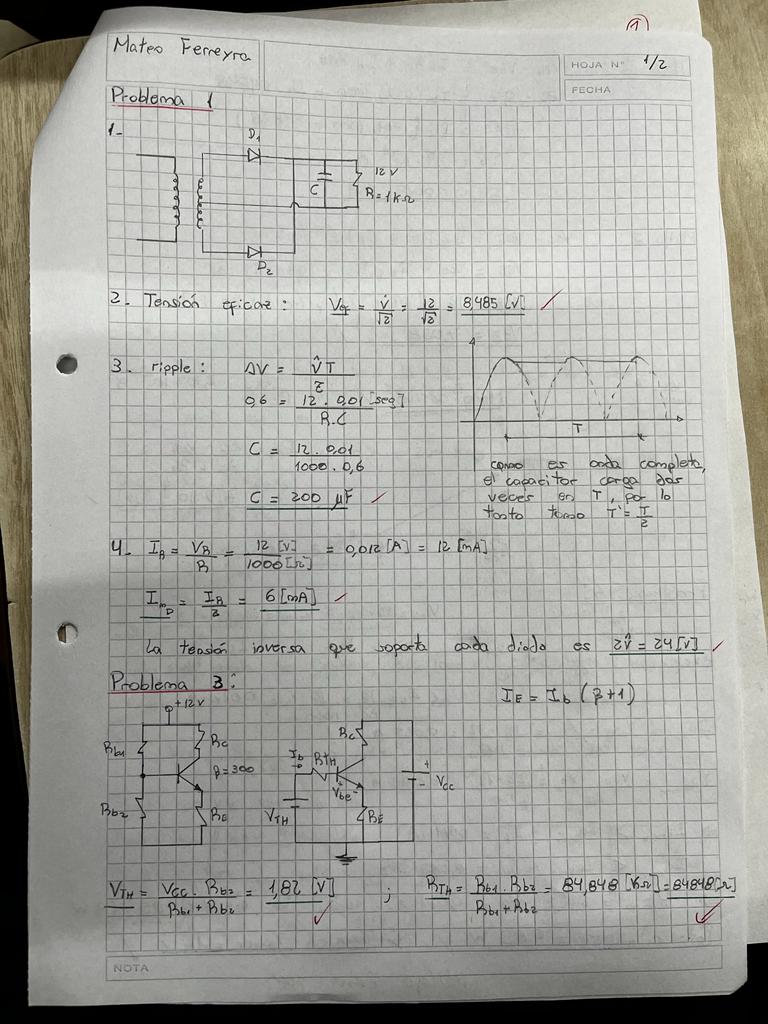 ①
Mateo Ferreyra
HOJA N° 1/2
FECHA
Problema 1
1-
D1
12 V
C
R = 1KΩ
D2
2- Tensión eficaz: Vef = V̂/√2 = 12/√2 = 8,485 [V] ✓
3. ripple: ΔV = V̂T/τ
0,6 = 12 . 0,01 [seg]/R.C
C = 12 . 0,01/1000 . 0,6
C = 200 μF ✓
T
como es onda completa,
el capacitor carga dos
veces en T, por lo
tanto tomo T' = T/2
4- IR = VR/R = 12 [V]/1000 [Ω] = 0,012 [A] = 12 [mA]
ImD = IR/2 = 6 [mA] ✓
La tensión inversa que soporta cada diodo es 2V̂ = 24 [V] ✓
Problema 3:
IE = Ib (β+1)
+12V
Rb1
Rc
β=300
Rb2
RE
Rc
Ib
RTH
+ Vbe -
VTH
RE
+
-
Vcc
VTH = Vcc . Rb2/Rb1 + Rb2 = 1,82 [V] ✓ ; RTH = Rb1 . Rb2/Rb1 + Rb2 = 84,848 [KΩ] = 84848 [Ω] ✓
NOTA